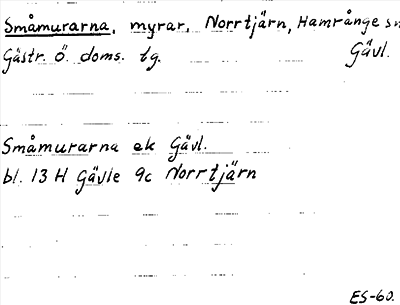 Småmurarna, myrar, Norrtjärn, Hamrånge sn
Gästr. Ö. doms. tg. Gävl.
Småmurarna ek Gävl.
bl. 13 H Gävle 9c Norrtjärn
ES-60.